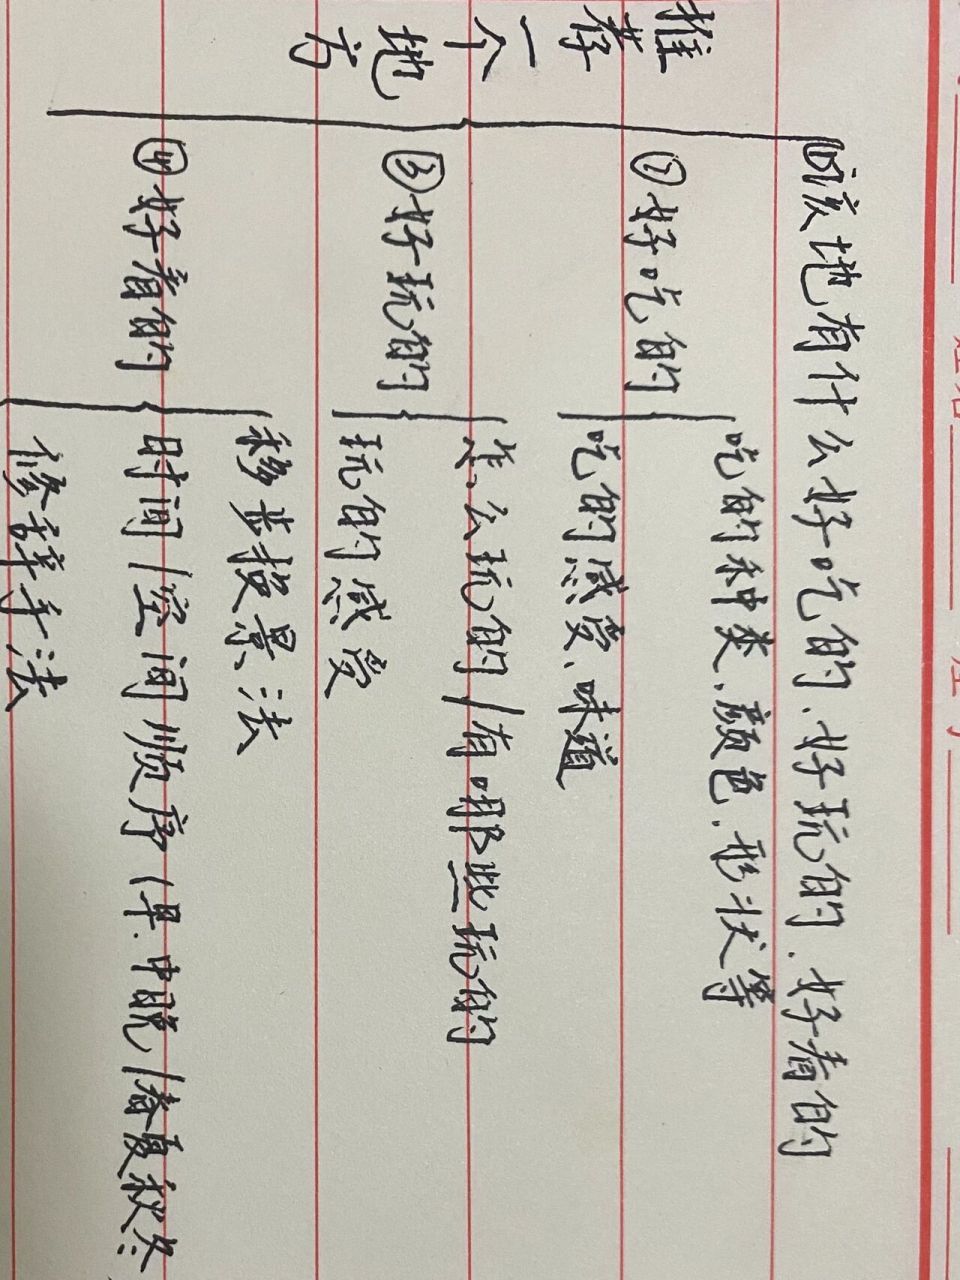 推荐一个地方
①该地有什么好吃的、好玩的、好看的
②好吃的
吃的种类、颜色、形状等
吃的感受、味道
③好玩的
怎么玩的/有哪些玩的
玩的感受
④好看的
移步换景法
时间/空间顺序(早、中晚/春夏秋冬
修辞手法